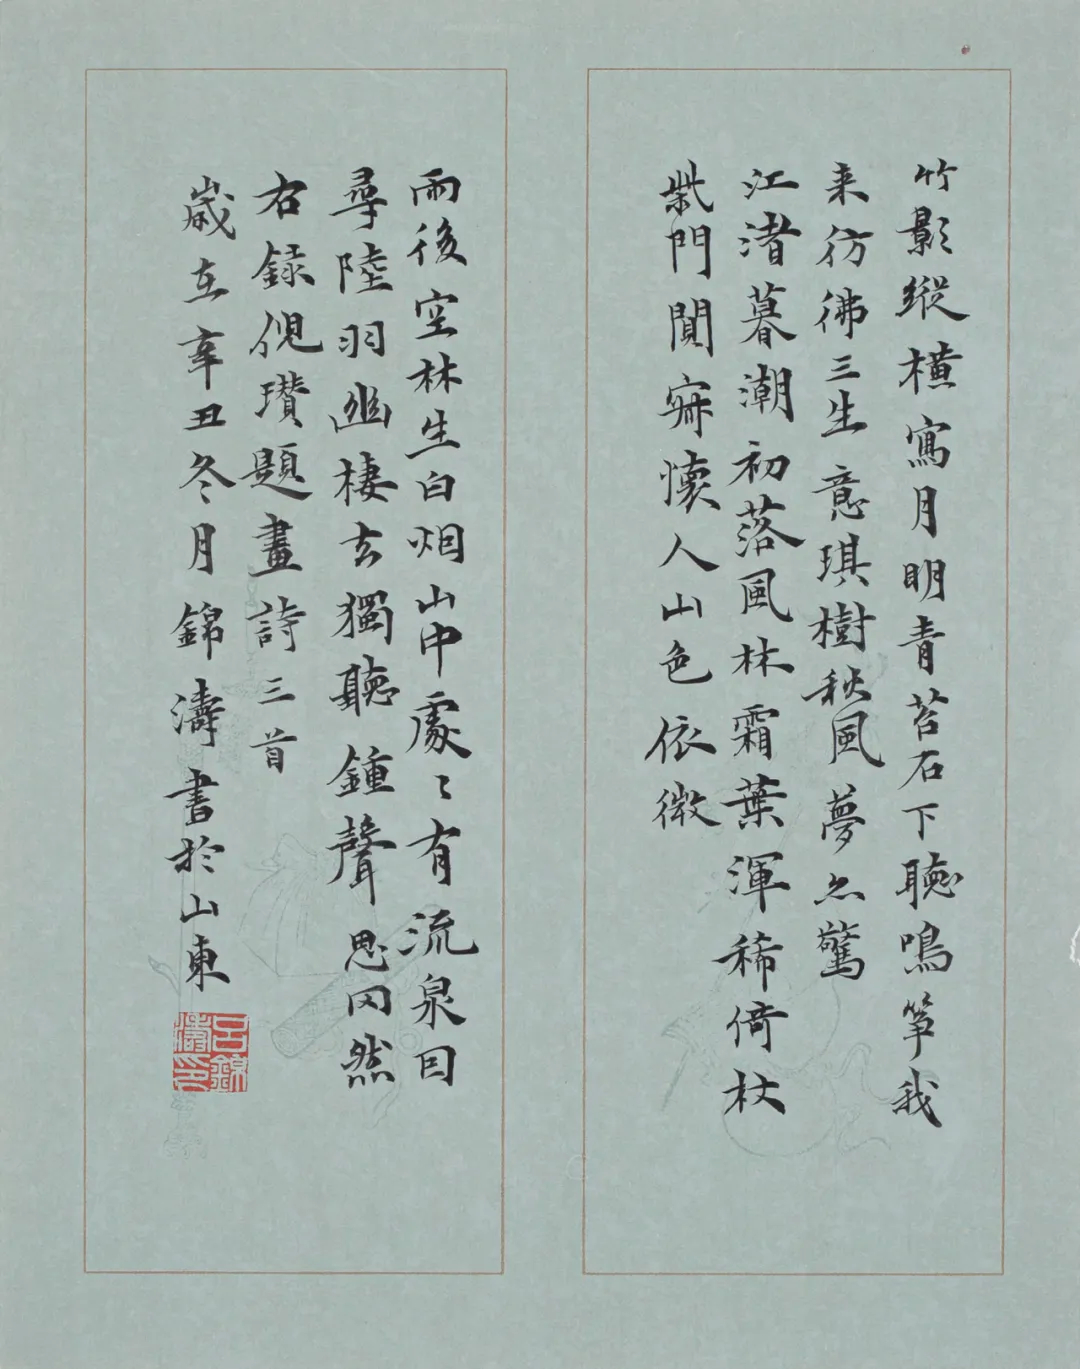 竹影縱橫寫月明青苔石下聽鳴箏我
来彷彿三生意琪樹秋風夢亦驚
江渚暮潮初落風林霜葉渾稀倚杖
柴門闃寂懷人山色依微
雨後空林生白烟山中處〻有流泉因
尋陸羽幽棲去獨聽鍾聲思罔然
右録倪瓚題畫詩三首
歲在辛丑冬月錦濤書於山東
呂錦濤印